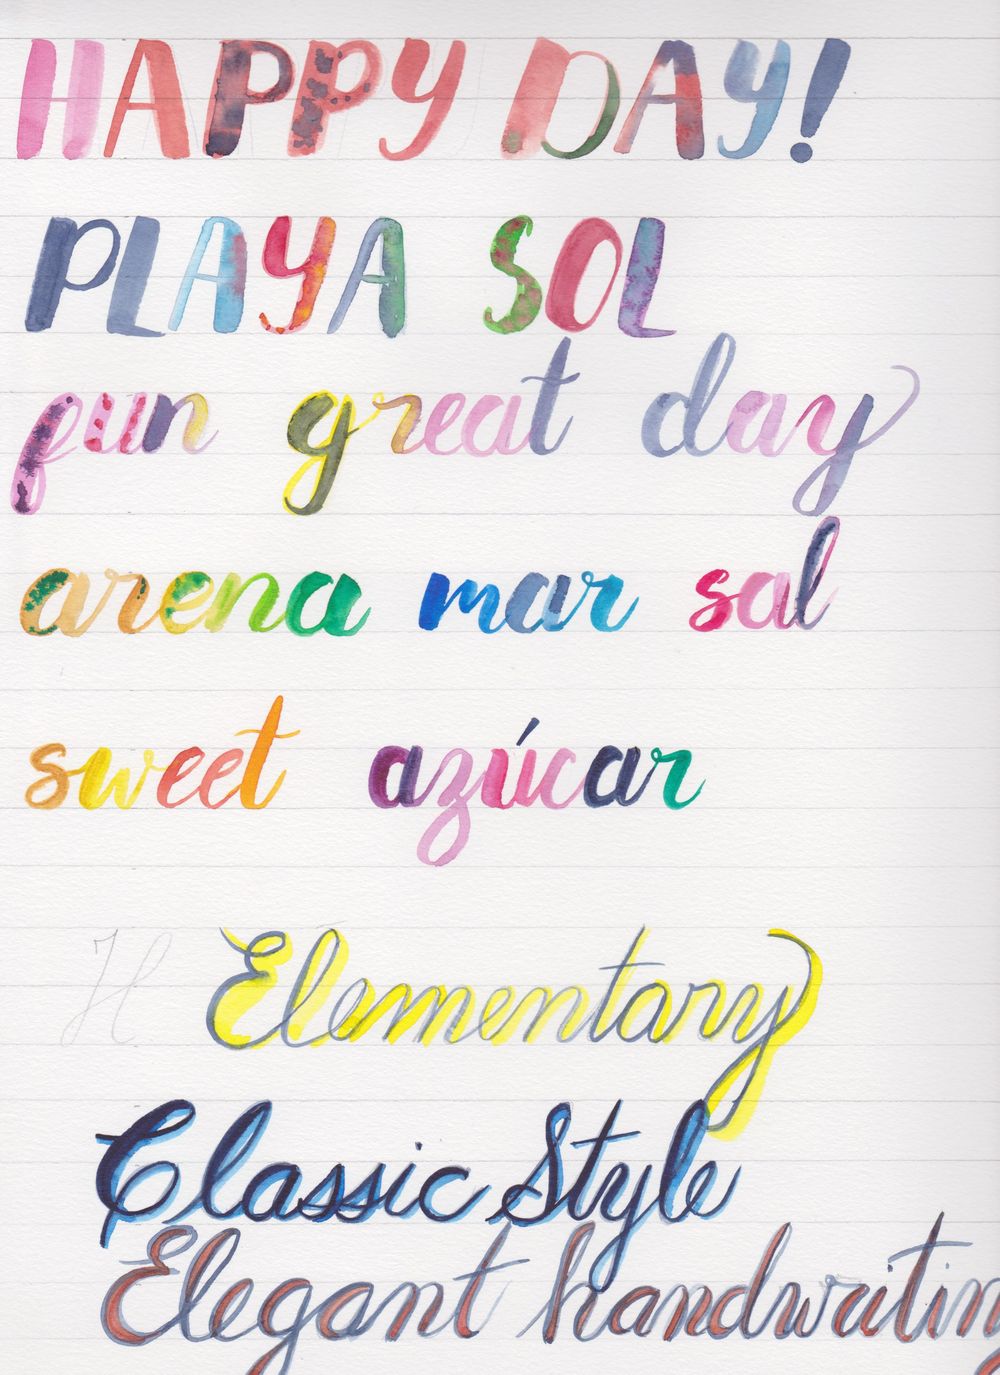 HAPPY DAY!
PLAYA SOL
fun great day
arena mar sal
sweet azúcar
H Elementary
Classic Style
Elegant handwriting